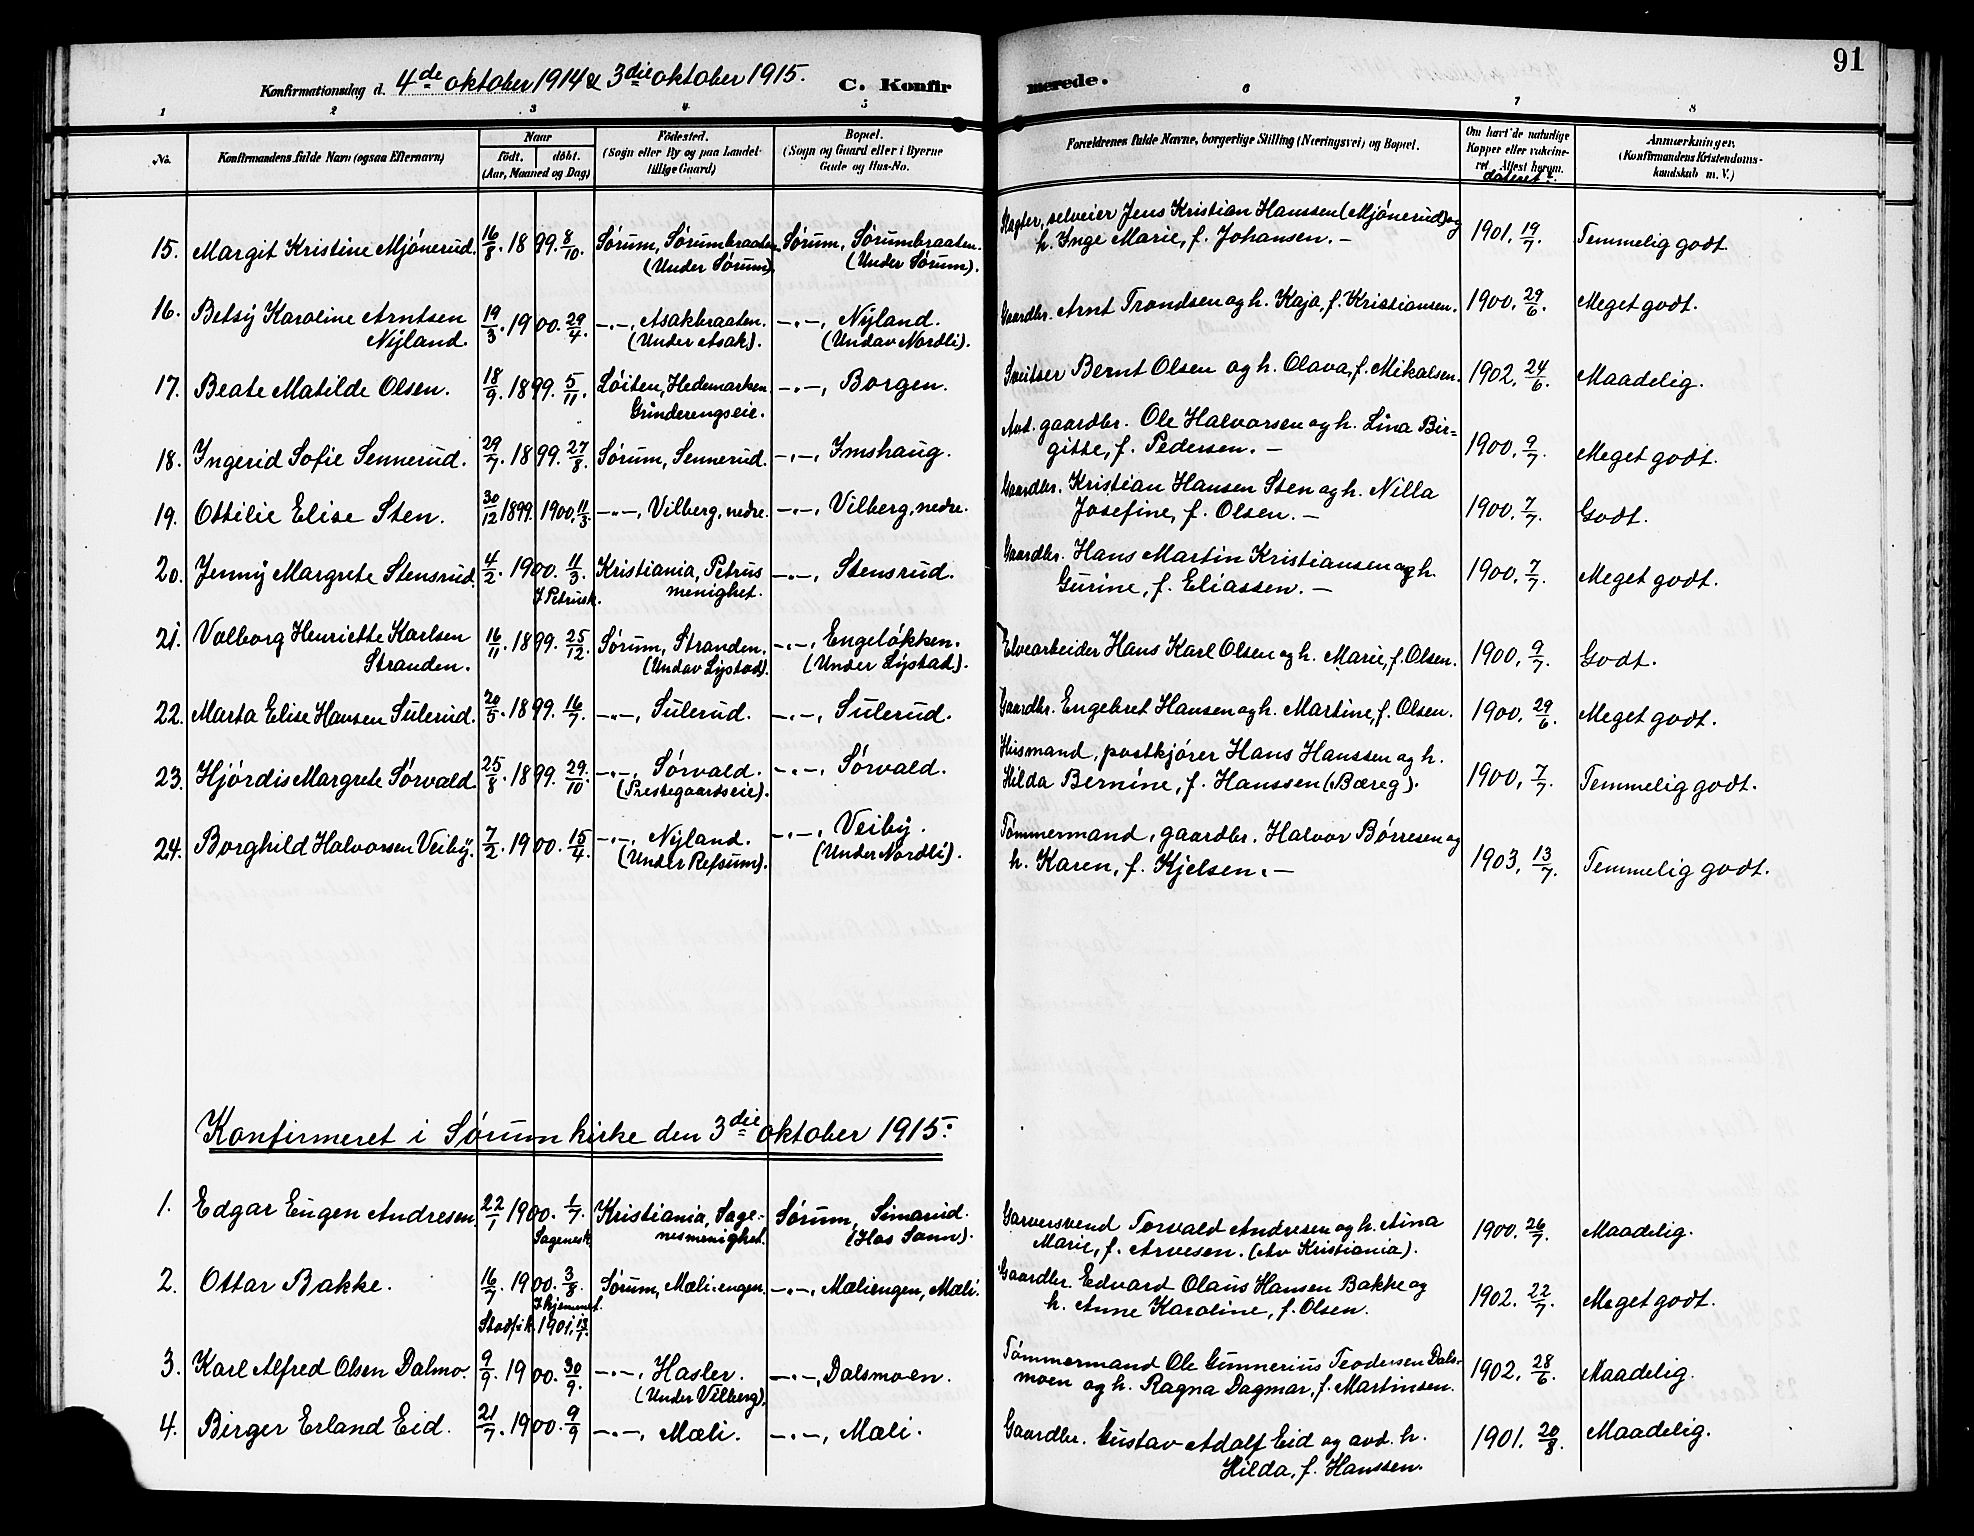 91
Konfirmationsdag d. 4de oktober 1914 & 3die oktober 1915. C. Konfir merede.
1 2 3 4 5 6 7 8
No. Konfirmandens fulde Navn (ogsaa Efternavn) Naar født, døbt. (Aar, Maaned og Dag) Fødested. (Sogn eller By og paa Landet tillige Gaard) Bopæl. (Sogn og Gaard eller i Byerne Gade og Hus-No. Forældrenes fulde Navne, borgerlige Stilling (Næringsvei) og Bopæl. Om havt de naturlige Kopper eller vakcineret. Attest herom. dateret: Anmærkninger. (Konfirmandens Kristendomskundskab m. V.)
15. Margit Kristine Mjónerud. 16/8. 1899. 8/10. Sórum, Sórumbraaten. Sórum, Sórumbraaten. selveier Jens Kristian Hanssen (Mjónerud) og 1901, 19/7. Temmelig godt.
(Under Sórum). (Under Sórum). h. Inge Marie, f. Johansen. —
16. Betsy Karoline Arntsen 19/3. 1900. 29/4. -"-, Asakbraaten. -"-, Nyland. Gaardbr. Arnt Trondsen og h. Kaja, f. Kristiansen. 1900, 29/6. Meget godt.
Nyland. (Under Asak). (Undav Nordli).
17. Beate Matilde Olsen. 18/9. 1899. 5/11. Lóiten, Hedemarken. -"-, Borgen. Sveitser Bernt Olsen og h. Olava, f. Mikalsen. 1902, 24/6. Maadelig.
Grinderengseie.
18. Yngerid Sofie Sennerud. 29/7. 1899. 27/8. Sórum, Sennerud. -"-, Ymshaug. Avd. gaardbr. Ole Halvorsen og h. Lina Bir= 1900, 9/7. Meget godt.
gitte, f. Pedersen. —
19. Ottilie Elise Sten. 30/12 1899. 1900, 11/3. -"-, Vilberg, nedre. -"-, Vilberg, nedre. Gaardbr. Kristian Hansen Sten og h. Nilla 1900, 7/7. Godt.
Josefine, f. Olsen. —
20. Jenny Margrete Stensrud. 4/2. 1900. 11/3. Kristiania, Petrus -"-, Stensrud. Gaardbr. Hans Martin Kristiansen og h. 1900, 7/7. Meget godt.
I Petrusk. menighet. Gurine, f. Eliassen. —
21. Valborg Henriette Karlsen 16/11. 1899. 25/12. Sórum, Stranden. -"-, Engelókken. Elvearbeider Hans Karl Olsen og h. Marie, f. Olsen. 1900, 9/7. Godt.
Stranden. (Undav Lystad). (Under Lystad).
22. Marta Elise Hansen Sulerud. 20/5. 1899. 16/7. -"-, Sulerud. -"-, Sulerud. Gaardbr. Engebret Hansen og h. Martine, f. Olsen. 1900, 29/6. Meget godt.
23. Hjórdis Margrete Sórvald. 25/8. 1899. 29/10. -"-, Sórvald. -"-, Sórvald. Husmand, postkjórer Hans Hanssen og h. 1900, 7/7. Temmelig godt.
(Prestegaardseie). Hilda Bernine, f. Hanssen (Bæreg).
24. Borghild Halvorsen Veiby. 7/2. 1900. 15/4. -"-, Nyland. -"-, Veiby. Tómmermand, gaardbr. Halvor Bórresen og 1903, 13/7. Temmelig godt.
(Under Refsum). (Under Nordli). h. Karen, f. Kjelsen. —
Konfirmeret i Sórum kirke den 3die oktober 1915:
1. Edgar Eugen Andresen 22/1 1900. 1/7. Kristiania, Sage- Sórum, Simarud. Garversvend Torvald Andresen og h. Aina 1900. 26/7. Maadelig.
Sagenesk. nesmenighet. (Hos Sann). Marie, f. Arvesen. (Av Kristiania).
2. Ottar Bakke. 16/7. 1900. 3/8. Sórum, Mæliengen. -"-, Mæliengen, Mæli. Gaardbr. Edvard Olaus Hansen Bakke og 1902. 22/7. Meget godt.
I hjemmet. h. Anne Karoline, f. Olsen.
Stadf. i k. 1901, 13/1.
3. Karl Alfred Olsen Dalmo. 9/9. 1900. 30/9. -"-, Hasler. -"-, Dalsmoen. Tómmermand Ole Gunnerius Teodersen Dals- 1902. 28/6. Maadelig.
(Under Vilberg). moen og h. Ragna Dagmar, f. Martinsen.
4. Birger Erland Eid. 21/7. 1900. 9/9 -"-, Mæli. -"-, Mæli. Gaardbr. Gustav Adolf Eid og avd. h. 1901. 20/8. Maadelig.
Hilda, f. Hanssen.